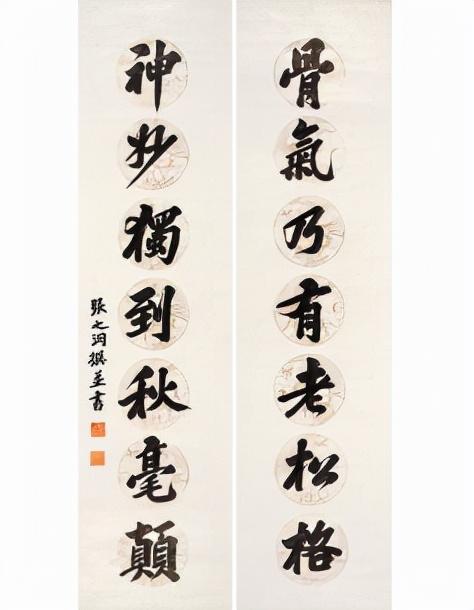 骨氣乃有老松格
神妙獨到秋毫顛
張之洞撰並書